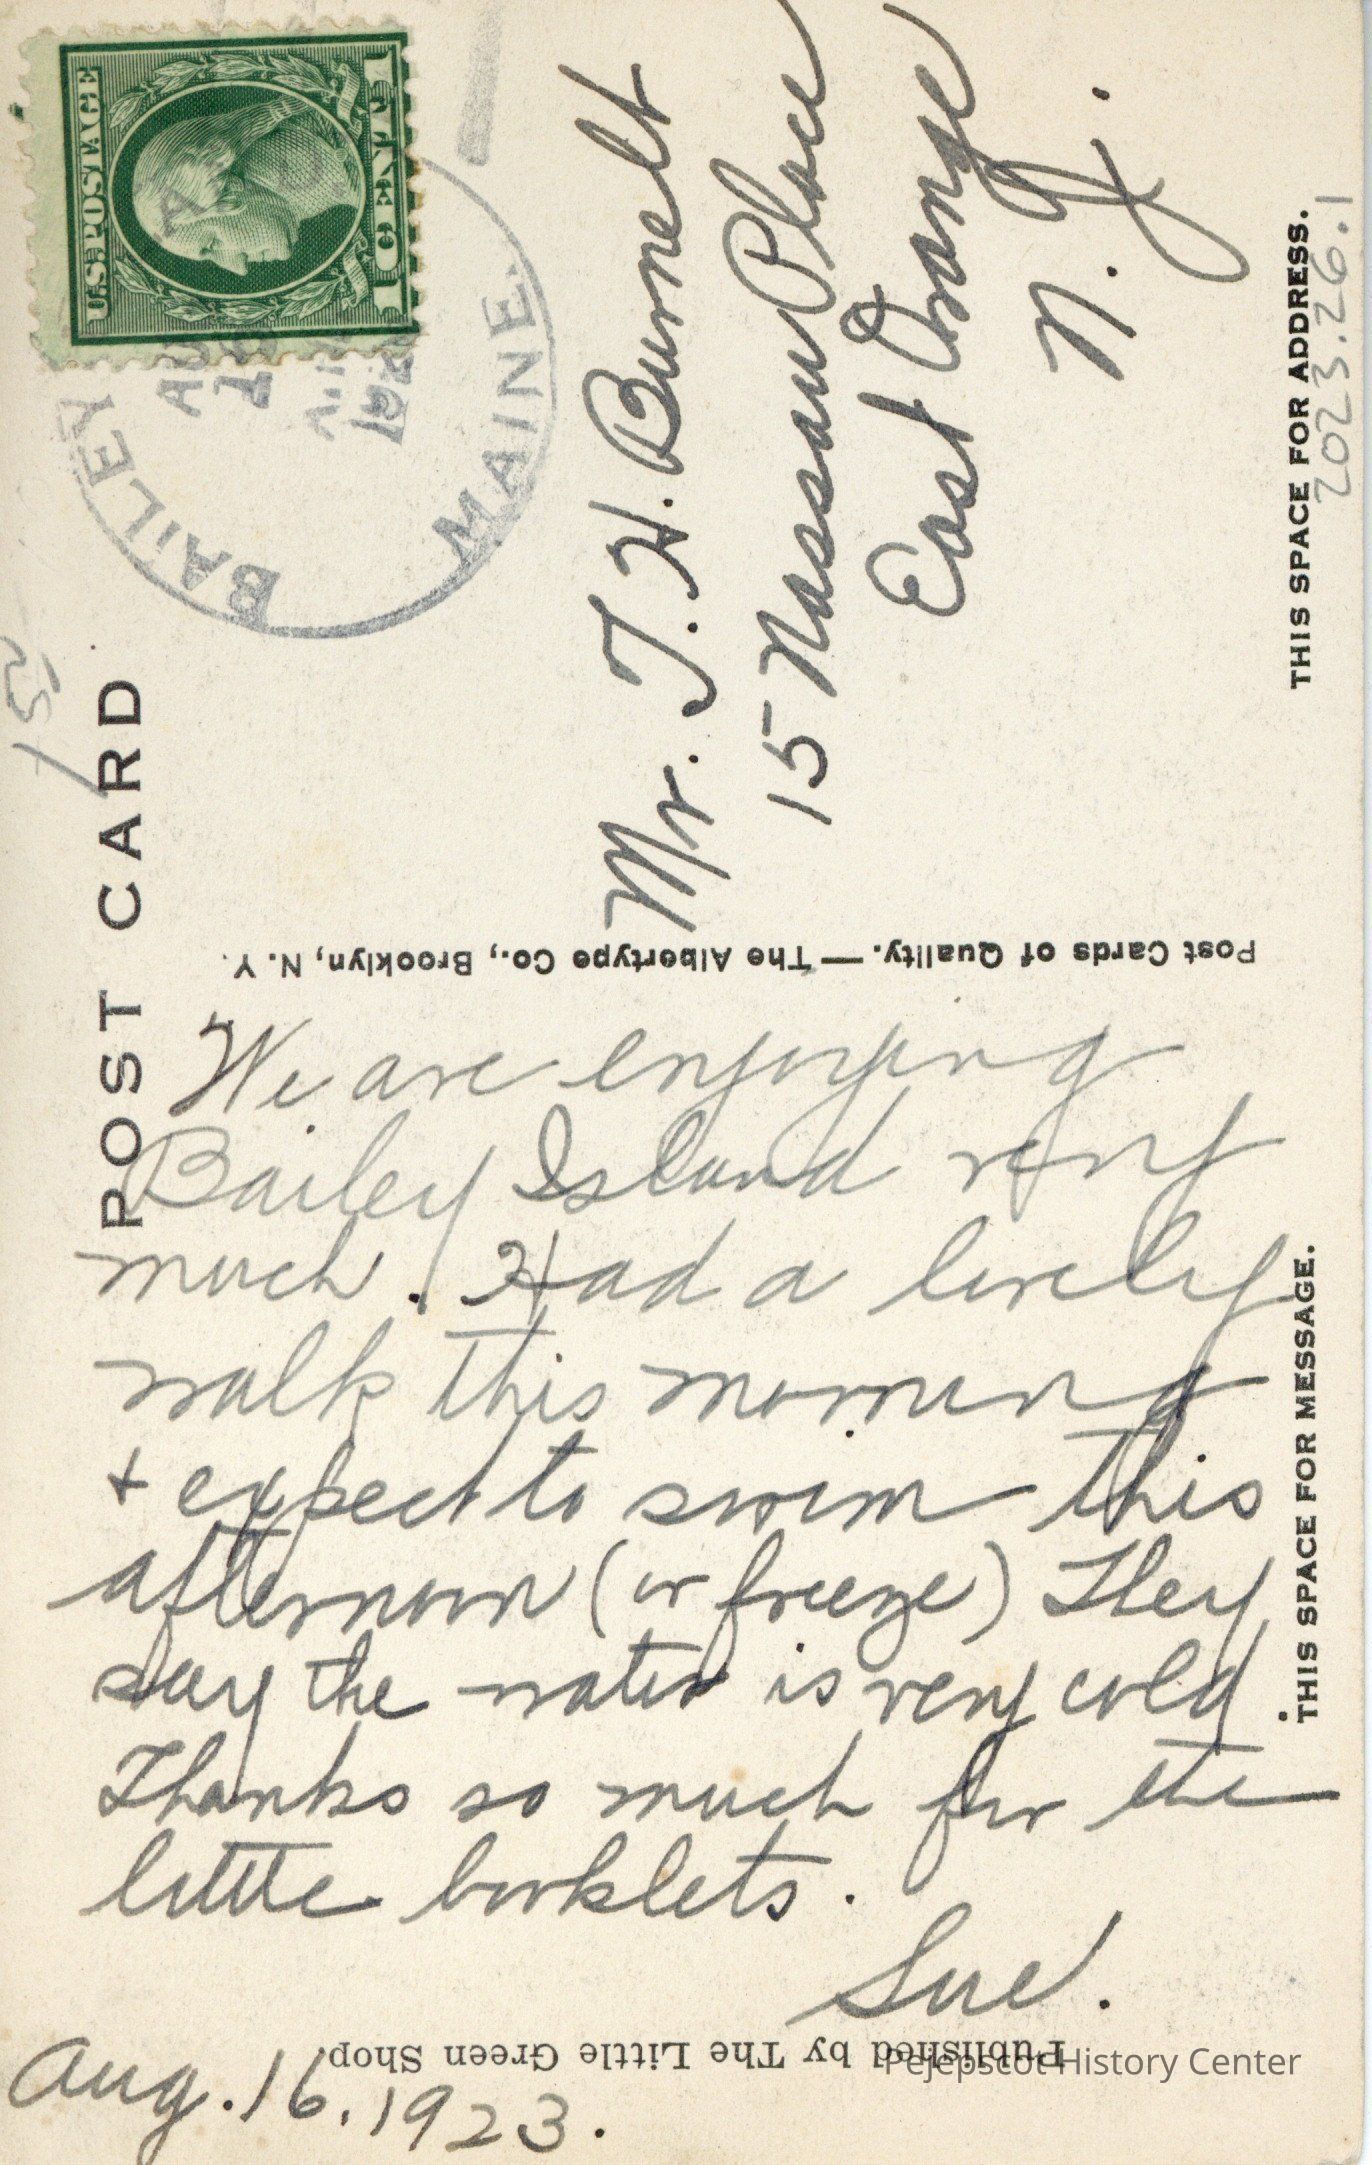 POST CARD
U.S. POSTAGE
1 CENT 1
BAILEY
MAINE.
Mr. T. H. Burnett
15 Nassau Place
East Orange
N. J.
THIS SPACE FOR ADDRESS.
2023.26.1
Post Cards of Quality.—The Albertype Co., Brooklyn, N. Y.
We are enjoying
Bailey Island very
much. Had a lovely
walk this morning
+ expect to swim this
afternoon (or freeze) They
say the water is very cold
Thanks so much for the
little booklets.
Sue.
THIS SPACE FOR MESSAGE.
Published by The Little Green Shop
Aug. 16. 1923.
Pejepscot History Center